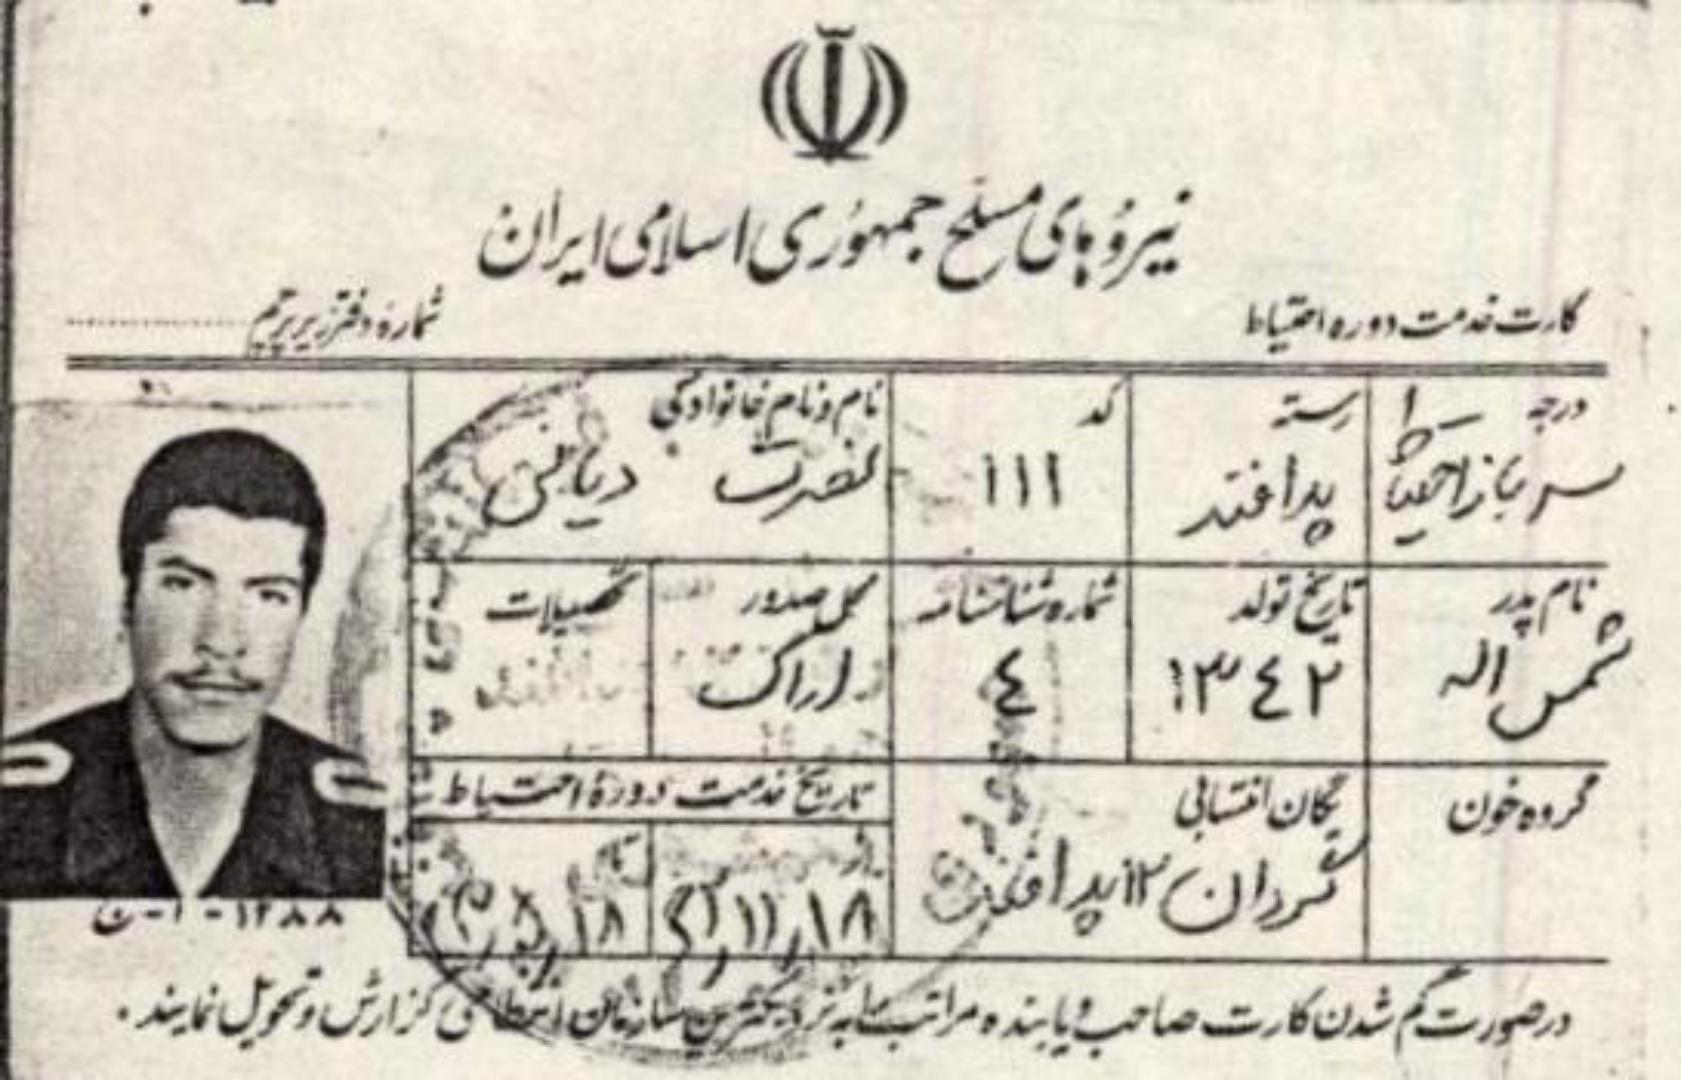 نیروهای مسلح جمهوری اسلامی ایران
کارت خدمت دوره احتیاط
شماره دفتر زیر پرچم
درجه
سرباز احتیاط
رسته
پدافند
کد
۱۱۱
نام و نام خانوادگی
نصرت
نام پدر
شمس اله
تاریخ تولد
۱۳٤۲
شماره شناسنامه
٤
محل صدور
اراک
تحصیلات
گروه خون
یگان انتسابی
گردان ۱۲ پدافند
تاریخ خدمت دوره احتیاط
از
۱۸
تا
۱۸
۱۲۸۸
در صورت گم شدن کارت صاحب و یابنده مراتب را به نزدیکترین سازمان انتظامی گزارش و تحویل نمایند.